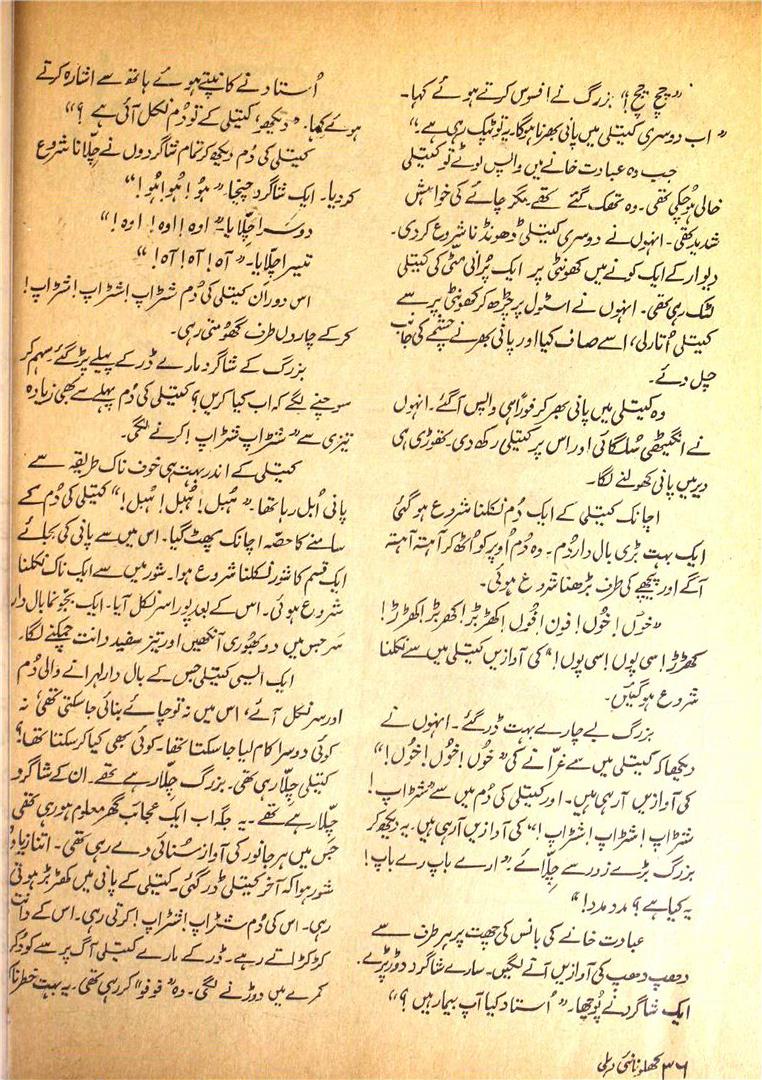 ”چچ چچ!“ بزرگ نے افسوس کرتے ہوئے کہا۔
”اب دوسری کیتلی میں پانی بھرنا ہوگا۔ یہ تو ٹپک رہی ہے۔“
جب وہ عبادت خانے میں واپس لوٹے تو کیتلی
خالی ہو چکی تھی۔ وہ تھک گئے تھے۔ مگر چائے کی خواہش
شدید تھی۔ انہوں نے دوسری کیتلی ڈھونڈنا شروع کردی۔
دیوار کے ایک کونے میں کھونٹی پر ایک پُرانی مٹّی کی کیتلی
لٹک رہی تھی۔ انہوں نے اسٹول پر چڑھ کر کھونٹی پر سے
کیتلی اُتارلی، اسے صاف کیا اور پانی بھرنے چشمے کی جانب
چل دئے۔
وہ کیتلی میں پانی بھر کر فوراً ہی واپس آگئے۔ انہوں
نے انگیٹھی سُلگائی اور اس پر کیتلی رکھ دی۔ تھوڑی ہی
دیر میں پانی کھولنے لگا۔
اچانک کیتلی کے ایک دُم نکلنا شروع ہوگئی
ایک بہت بڑی بال دار دُم۔ وہ دُم اُوپر کو اُٹھ کر آہستہ آہستہ
آگے اور پیچھے کی طرف بڑھنا شروع ہوئی۔
”خوں! خُوں! فون! فُوں! کھڑبڑ! کھربڑ! کھڑڑ!
کھڑڑ! سی پوں! سی پوں!“ کی آوازیں کیتلی میں سے نکلنا
شروع ہوگئیں۔
بزرگ بے چارے بہت ڈر گئے۔ انہوں نے
دیکھا کہ کیتلی میں سے غرّانے کی ”خُوں! خُوں! خُوں!“
کی آوازیں آرہی ہیں۔ اور کیتلی کی دُم میں سے ”شڑاپ!
شڑاپ! شڑاپ! شڑاپ!“ کی آوازیں آرہی ہیں۔ یہ دیکھ کر
بزرگ بڑے زور سے چِلّائے۔ ”ارے باپ رے باپ!
یہ کیا ہے؟ مدد مدد!“
عبادت خانے کی بانس کی چھت پر ہر طرف سے
دھپ دھپ کی آوازیں آنے لگیں۔ سارے شاگرد دوڑ پڑے۔
ایک شاگرد نے پُوچھا۔ ”اُستاد کیا آپ بیمار ہیں؟“
اُستاد نے کانپتے ہوئے ہاتھ سے اشارہ کرتے
ہوئے کہا۔ ”دیکھو، کیتلی کے تو دُم نکل آئی ہے؟“
کیتلی کی دُم دیکھ کر تمام شاگردوں نے چِلّانا شروع
کردیا۔ ایک شاگرد چیخا۔ ”ہُو! ہُو! ہُو!“
دوسرا چِلّایا۔ ”اوہ! اوہ! اوہ!“
تیسرا چلّایا۔ ”آہ! آہ! آہ!“
اس دوران کیتلی کی دُم شڑاپ! شڑاپ! شڑاپ!
کرکے چاروں طرف گھُومتی رہی۔
بزرگ کے شاگرد مارے ڈر کے پیلے پڑگئے۔ سہم کر
سوچنے لگے کہ اب کیا کریں؟ کیتلی کی دُم پہلے سے بھی زیادہ
تیزی سے ”شڑاپ شڑاپ! کرنے لگی۔
کیتلی کے اندر بہت ہی خوف ناک طریقہ سے
پانی اُبل رہا تھا۔ ”ہُبل! ہُبل! ہُبل!“ کیتلی کی دُم کے
سامنے کا حصّہ اچانک پھٹ گیا۔ اس میں سے پانی کی بجائے
ایک قسم کا شور نکلنا شروع ہوا۔ شور میں سے ایک ناک نکلنا
شروع ہوئی۔ اس کے بعد پورا سر نکل آیا۔ ایک بجّو نما بال دار
سَر جس میں دو بھُوری آنکھیں اور تیز سفید دانت چمکنے لگا۔
ایک ایسی کیتلی جس کے بال دار لہرانے والی دُم
اور سر نکل آئے، اس میں نہ تو چائے بنائی جاسکتی تھی، نہ
کوئی دوسرا کام لیا جاسکتا تھا۔ کوئی بھی کیا کرسکتا تھا؟
کیتلی چِلّا رہی تھی۔ بزرگ چِلّا رہے تھے۔ ان کے شاگرد
چِلّا رہے تھے۔ یہ جگہ اب ایک عجائب گھر معلوم ہو رہی تھی
جس میں ہر جانور کی آواز سُنائی دے رہی تھی۔ اتنا زیادہ
شور ہوا کہ آخر کیتلی ڈر گئی۔ کیتلی کے پانی میں کھڑبڑ ہوتی
رہی۔ اس کی دُم شڑاپ! شڑاپ! کرتی رہی۔ اس کے دانت
کڑکڑاتے رہے۔ ڈر کے مارے کیتلی آگ پر سے کُود کر
کمرے میں دوڑنے لگی۔ وہ ”فوفو“ کر رہی تھی۔ یہ بہت خطرناک
۳۶ کھلونا نئی دہلی